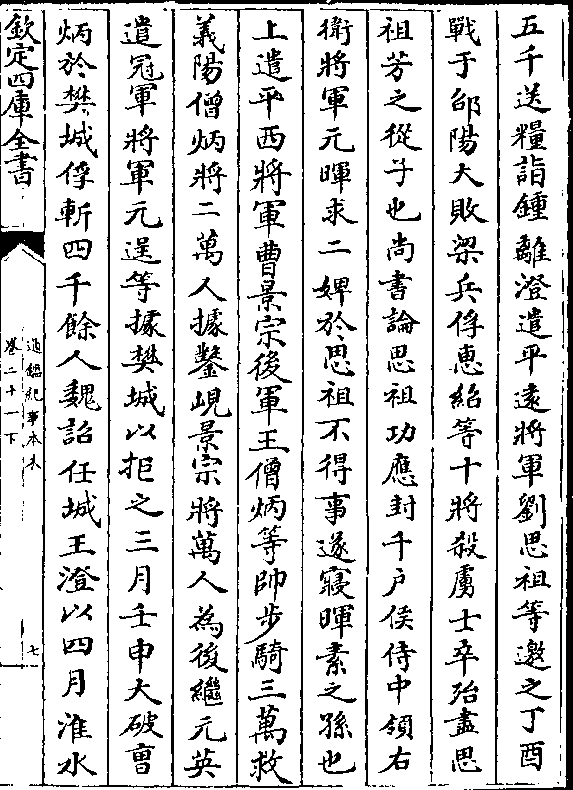 五千送糧詣鍾離澄遣平遠將軍劉思祖等邀之丁酉
戰于邵陽大敗梁兵俘惠紹等十將殺虜士卒殆盡思
祖芳之從子也尚書論思祖功應封千戶侯侍中領右
衛將軍元暉求二婢於思祖不得事遂寢暉素之孫也
上遣平西將軍曹景宗後軍王僧炳等帥步騎三萬救
義陽僧炳將二萬人據鑿峴景宗將萬人為後繼元英
遣冠軍將軍元逞等據樊城以拒之三月壬申大破僧
炳於樊城俘斬四千餘人魏詔任城王澄以四月淮水
欽定四庫全書
通鑑紀事本末
卷二十一下
七